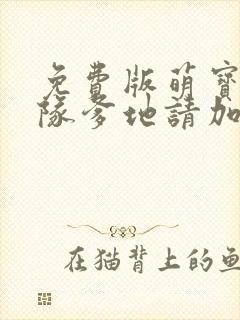 免費版萌寶
隊爹地請加
在猫背上的鱼